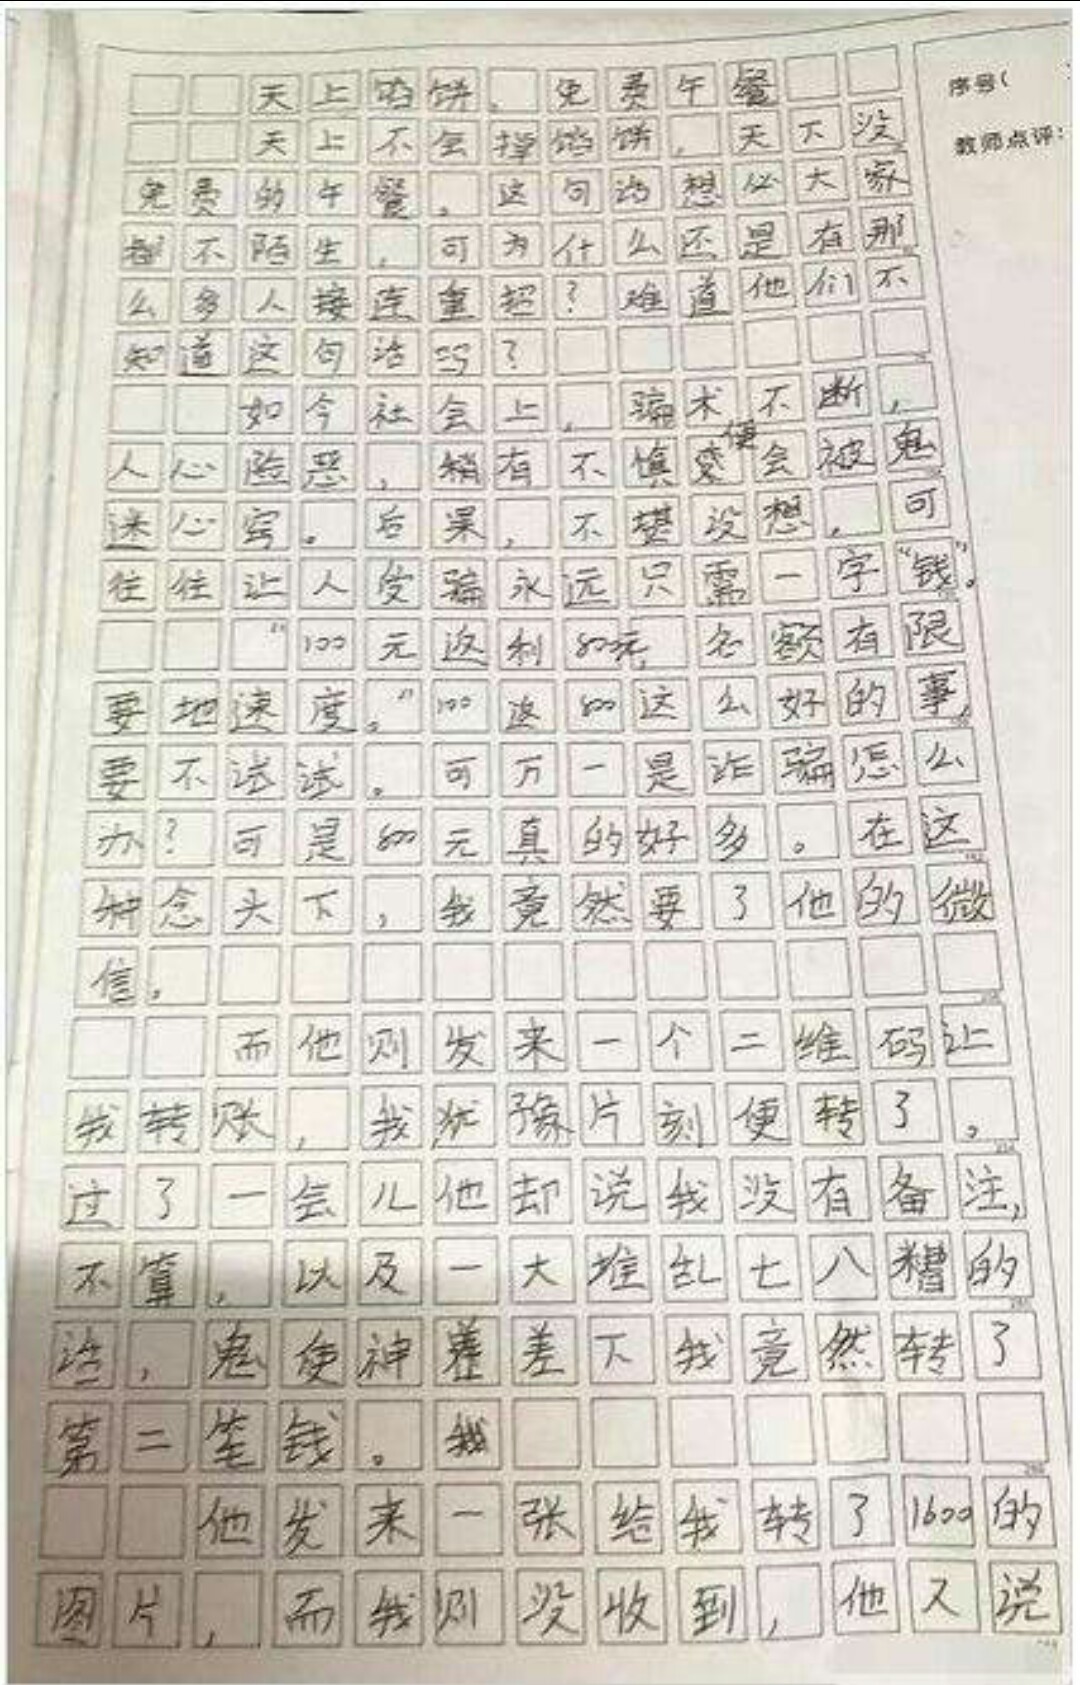 天上馅饼、免费午餐
序号(
天上不会掉馅饼,天下没
教师点评:
免费的午餐。这句话想必大家
都不陌生,可为什么还是有那
么多人接连重蹈?难道他们不
知道这句话吗?
如今社会上,骗术不断,
人心险恶,稍有不慎便会被鬼
迷心窍。后果,不堪设想。可
往往让人受骗永远只需一字“钱”。
“100元返利800元,名额有限
要地速度。”100返800这么好的事,
要不试试。可万一是诈骗怎么
办?可是800元真的好多。在这
种念头下,我竟然要了他的微
信。
而他则发来一个二维码让
我转账,我犹豫片刻便转了。
过了一会儿他却说我没有备注,
不算,以及一大堆乱七八糟的
话,鬼使神差差下我竟然转了
第二笔钱。我
他发来一张给我转了1600的
图片,而我则没收到,他又说